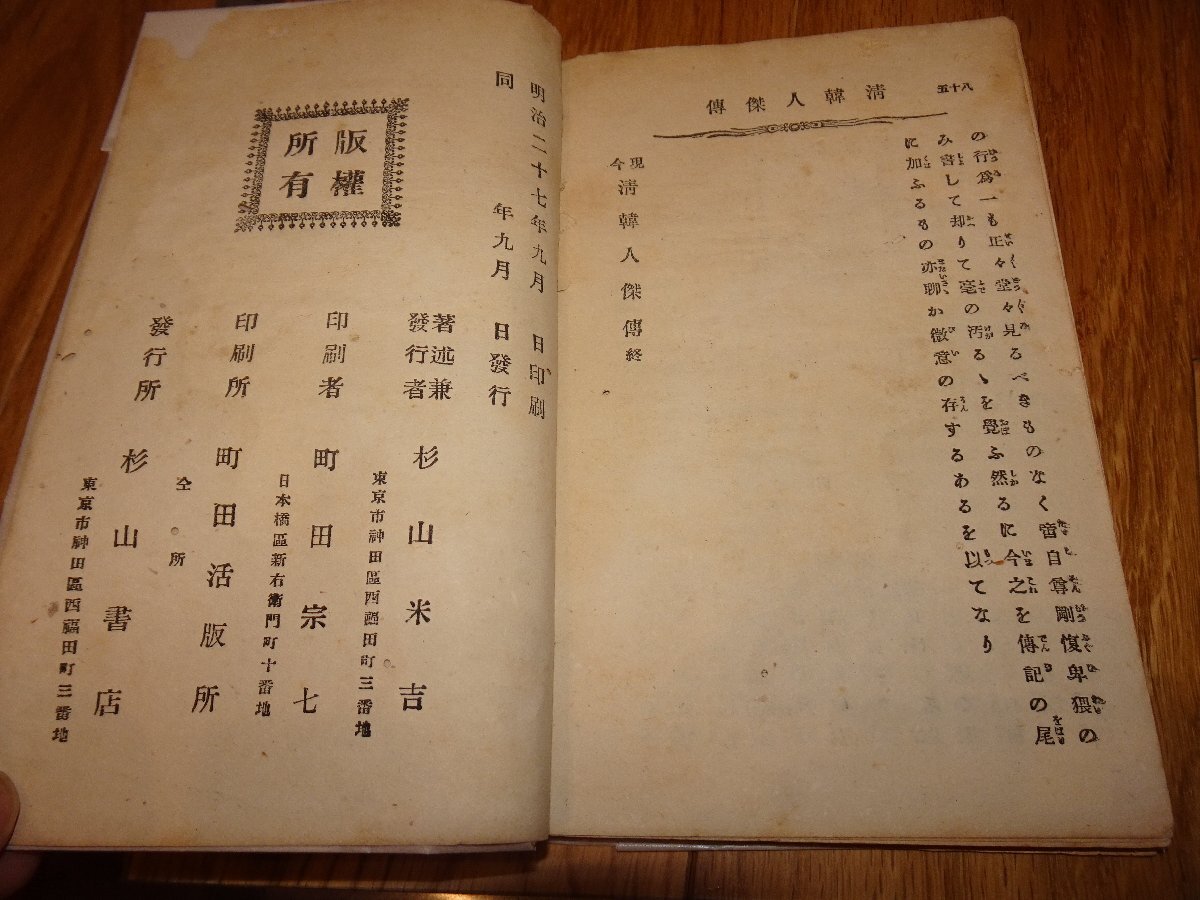 八十五
清韓人傑傳
の行爲一も正々堂々見るべきものなく啻自尊剛愎卑猥の
み書して却りて毫の汚るゝを覺ふ然るに今之を傳記の尾
に加ふるもの亦聊か微意の存するあるを以てなり
現今清韓人傑傳終
明治二十七年九月　日印刷
同　年九月　日發行
版權所有
著述兼發行者　杉山米吉
東京市神田區西福田町三番地
印刷者　町田宗七
日本橋區新右衛門町十番地
印刷所　町田活版所
仝所
發行所　杉山書店
東京市神田區西福田町三番地